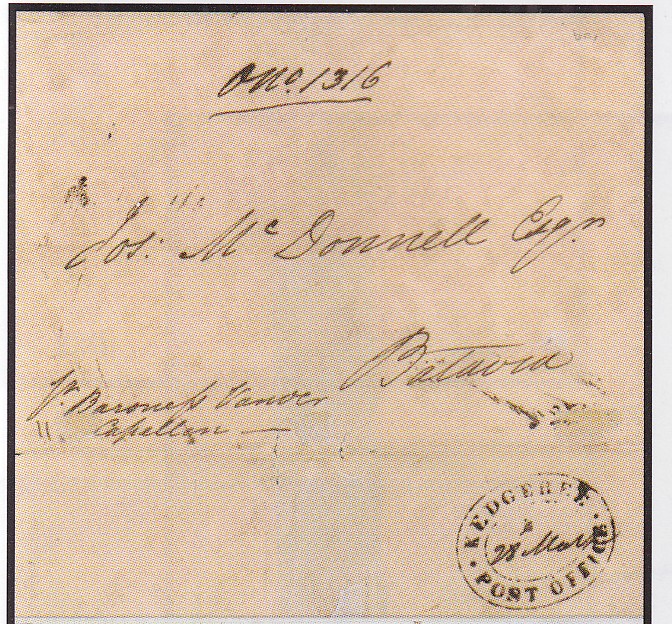 O No. 1316
Jos: Mc Donnell Esqr
Batavia
Pr. Baroness Vander
" Capellen —
KEDGEREE
28 March
POST OFFICE